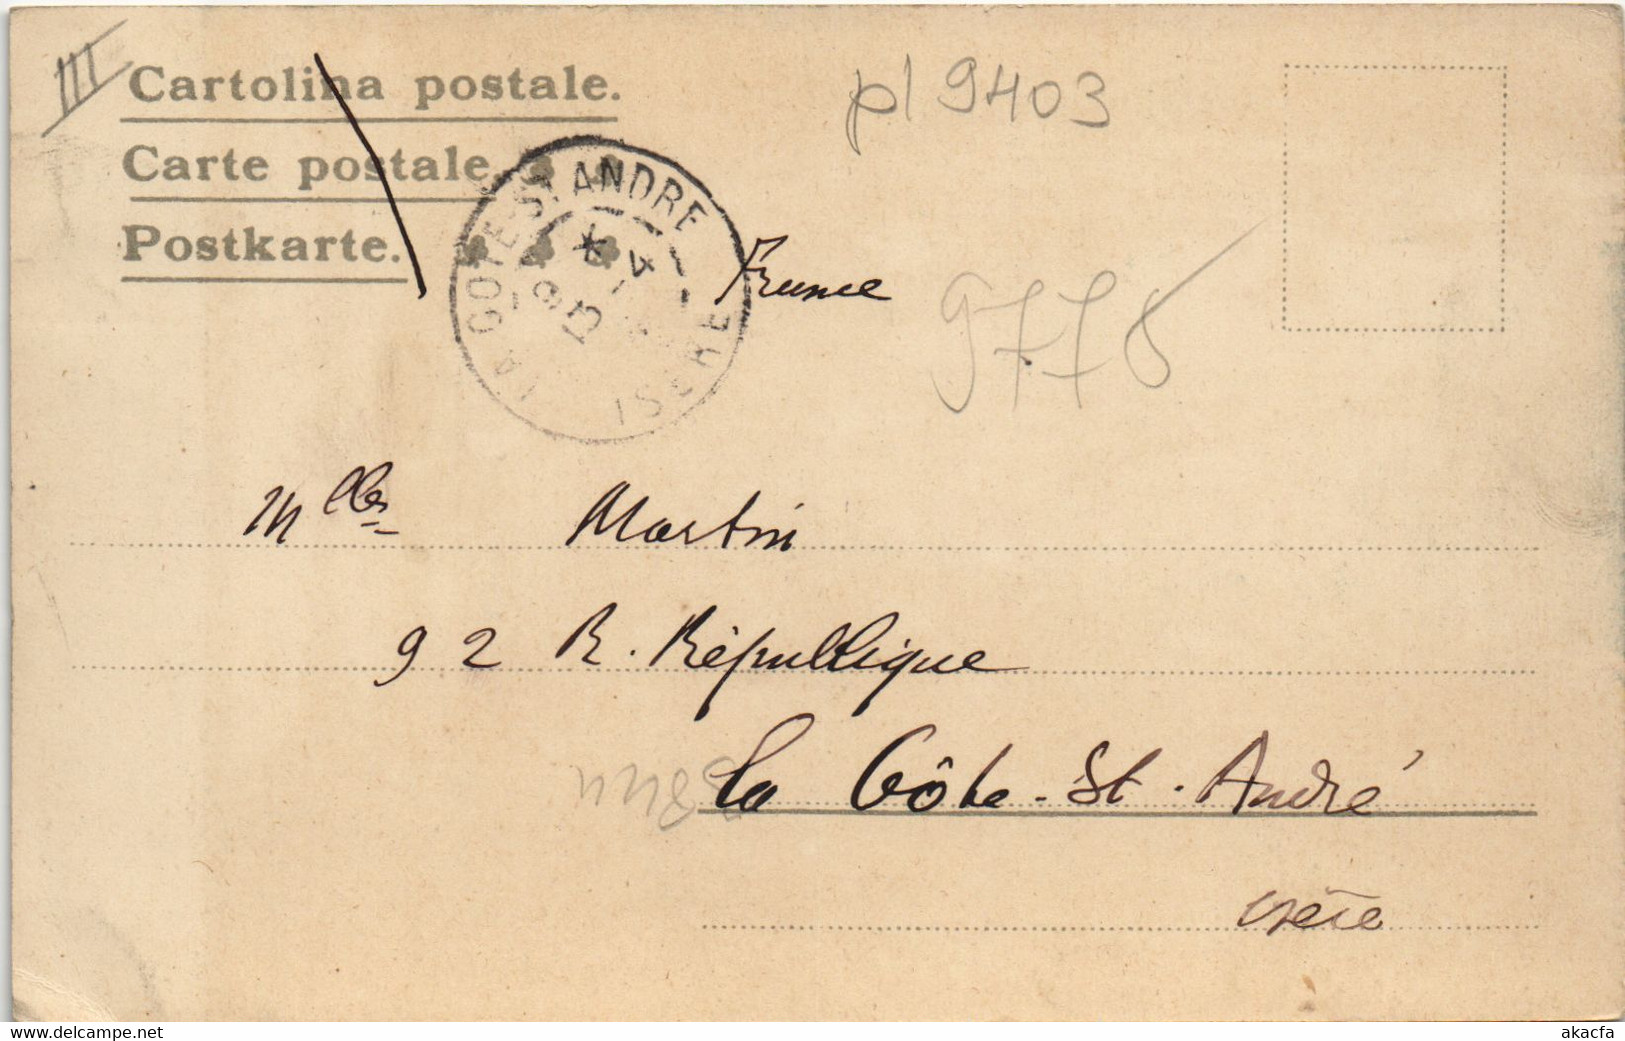 III
Cartolina postale.
pl 9403
Carte postale.
Postkarte.
LA COTE-ST ANDRE
ISERE
France
9778
Mlles Martin
92 R. République
La Côte-St-André
Isère
delcampe.net
akacfa